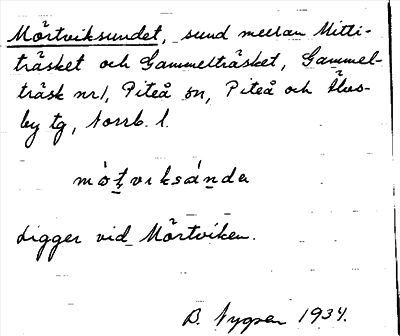 Mörtviksundet, sund mellan Mitti-
träsket och Gammelträsket, Gammel-
träsk nr 1, Piteå sn, Piteå och Älvs-
by tg, Norrb. l.
mòt̥vıksánda
Ligger vid Mörtviken.
B. Nygren 1934.